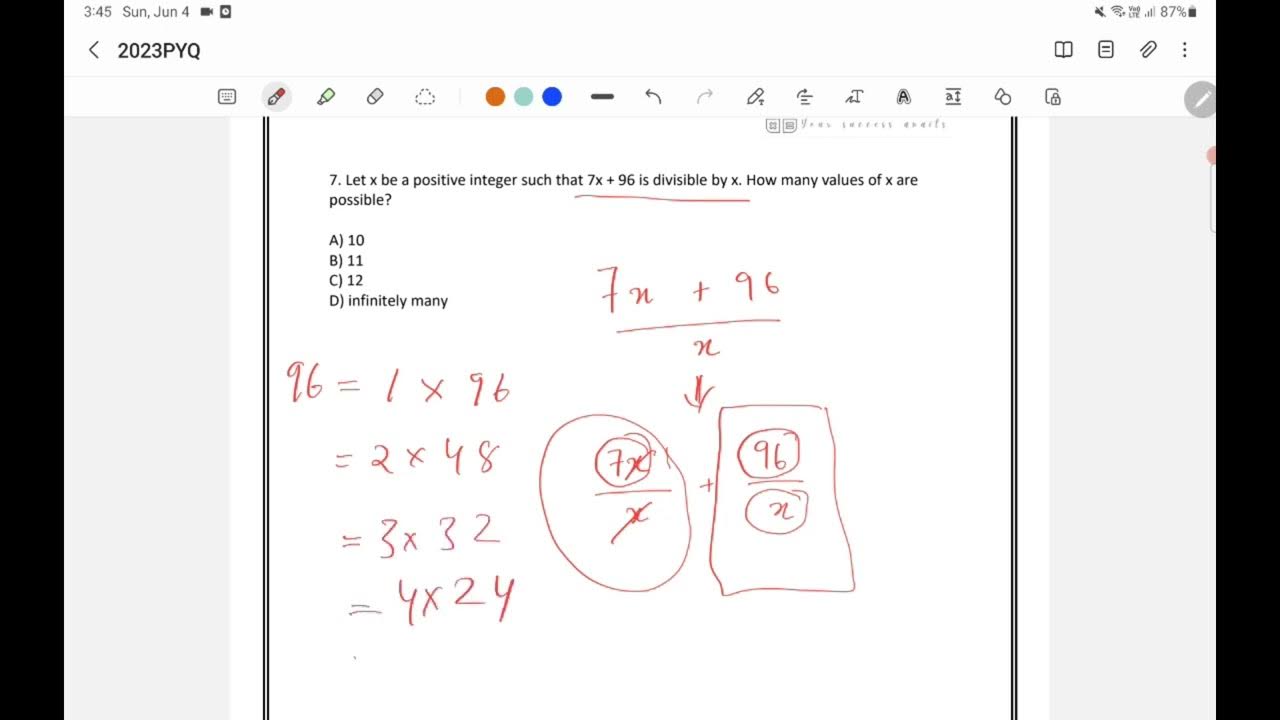 3:45 Sun, Jun 4
87%
2023PYQ
Your success awaits
7. Let x be a positive integer such that 7x + 96 is divisible by x. How many values of x are
possible?
A) 10
B) 11
C) 12
D) infinitely many
7x + 96
x
96 = 1 × 96
= 2 × 48
= 3 × 32
= 4 × 24
7x + 96
x x